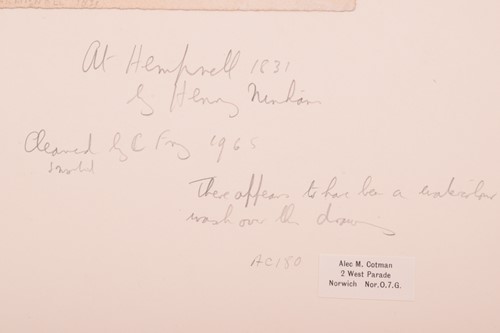 At Hempnell 1831
by Henry Ninham
Cleaned by C Fry 1965
There appears to have been a watercolour
wash over the drawing
AC180
Alec M. Cotman
2 West Parade
Norwich Nor.O.7.G.